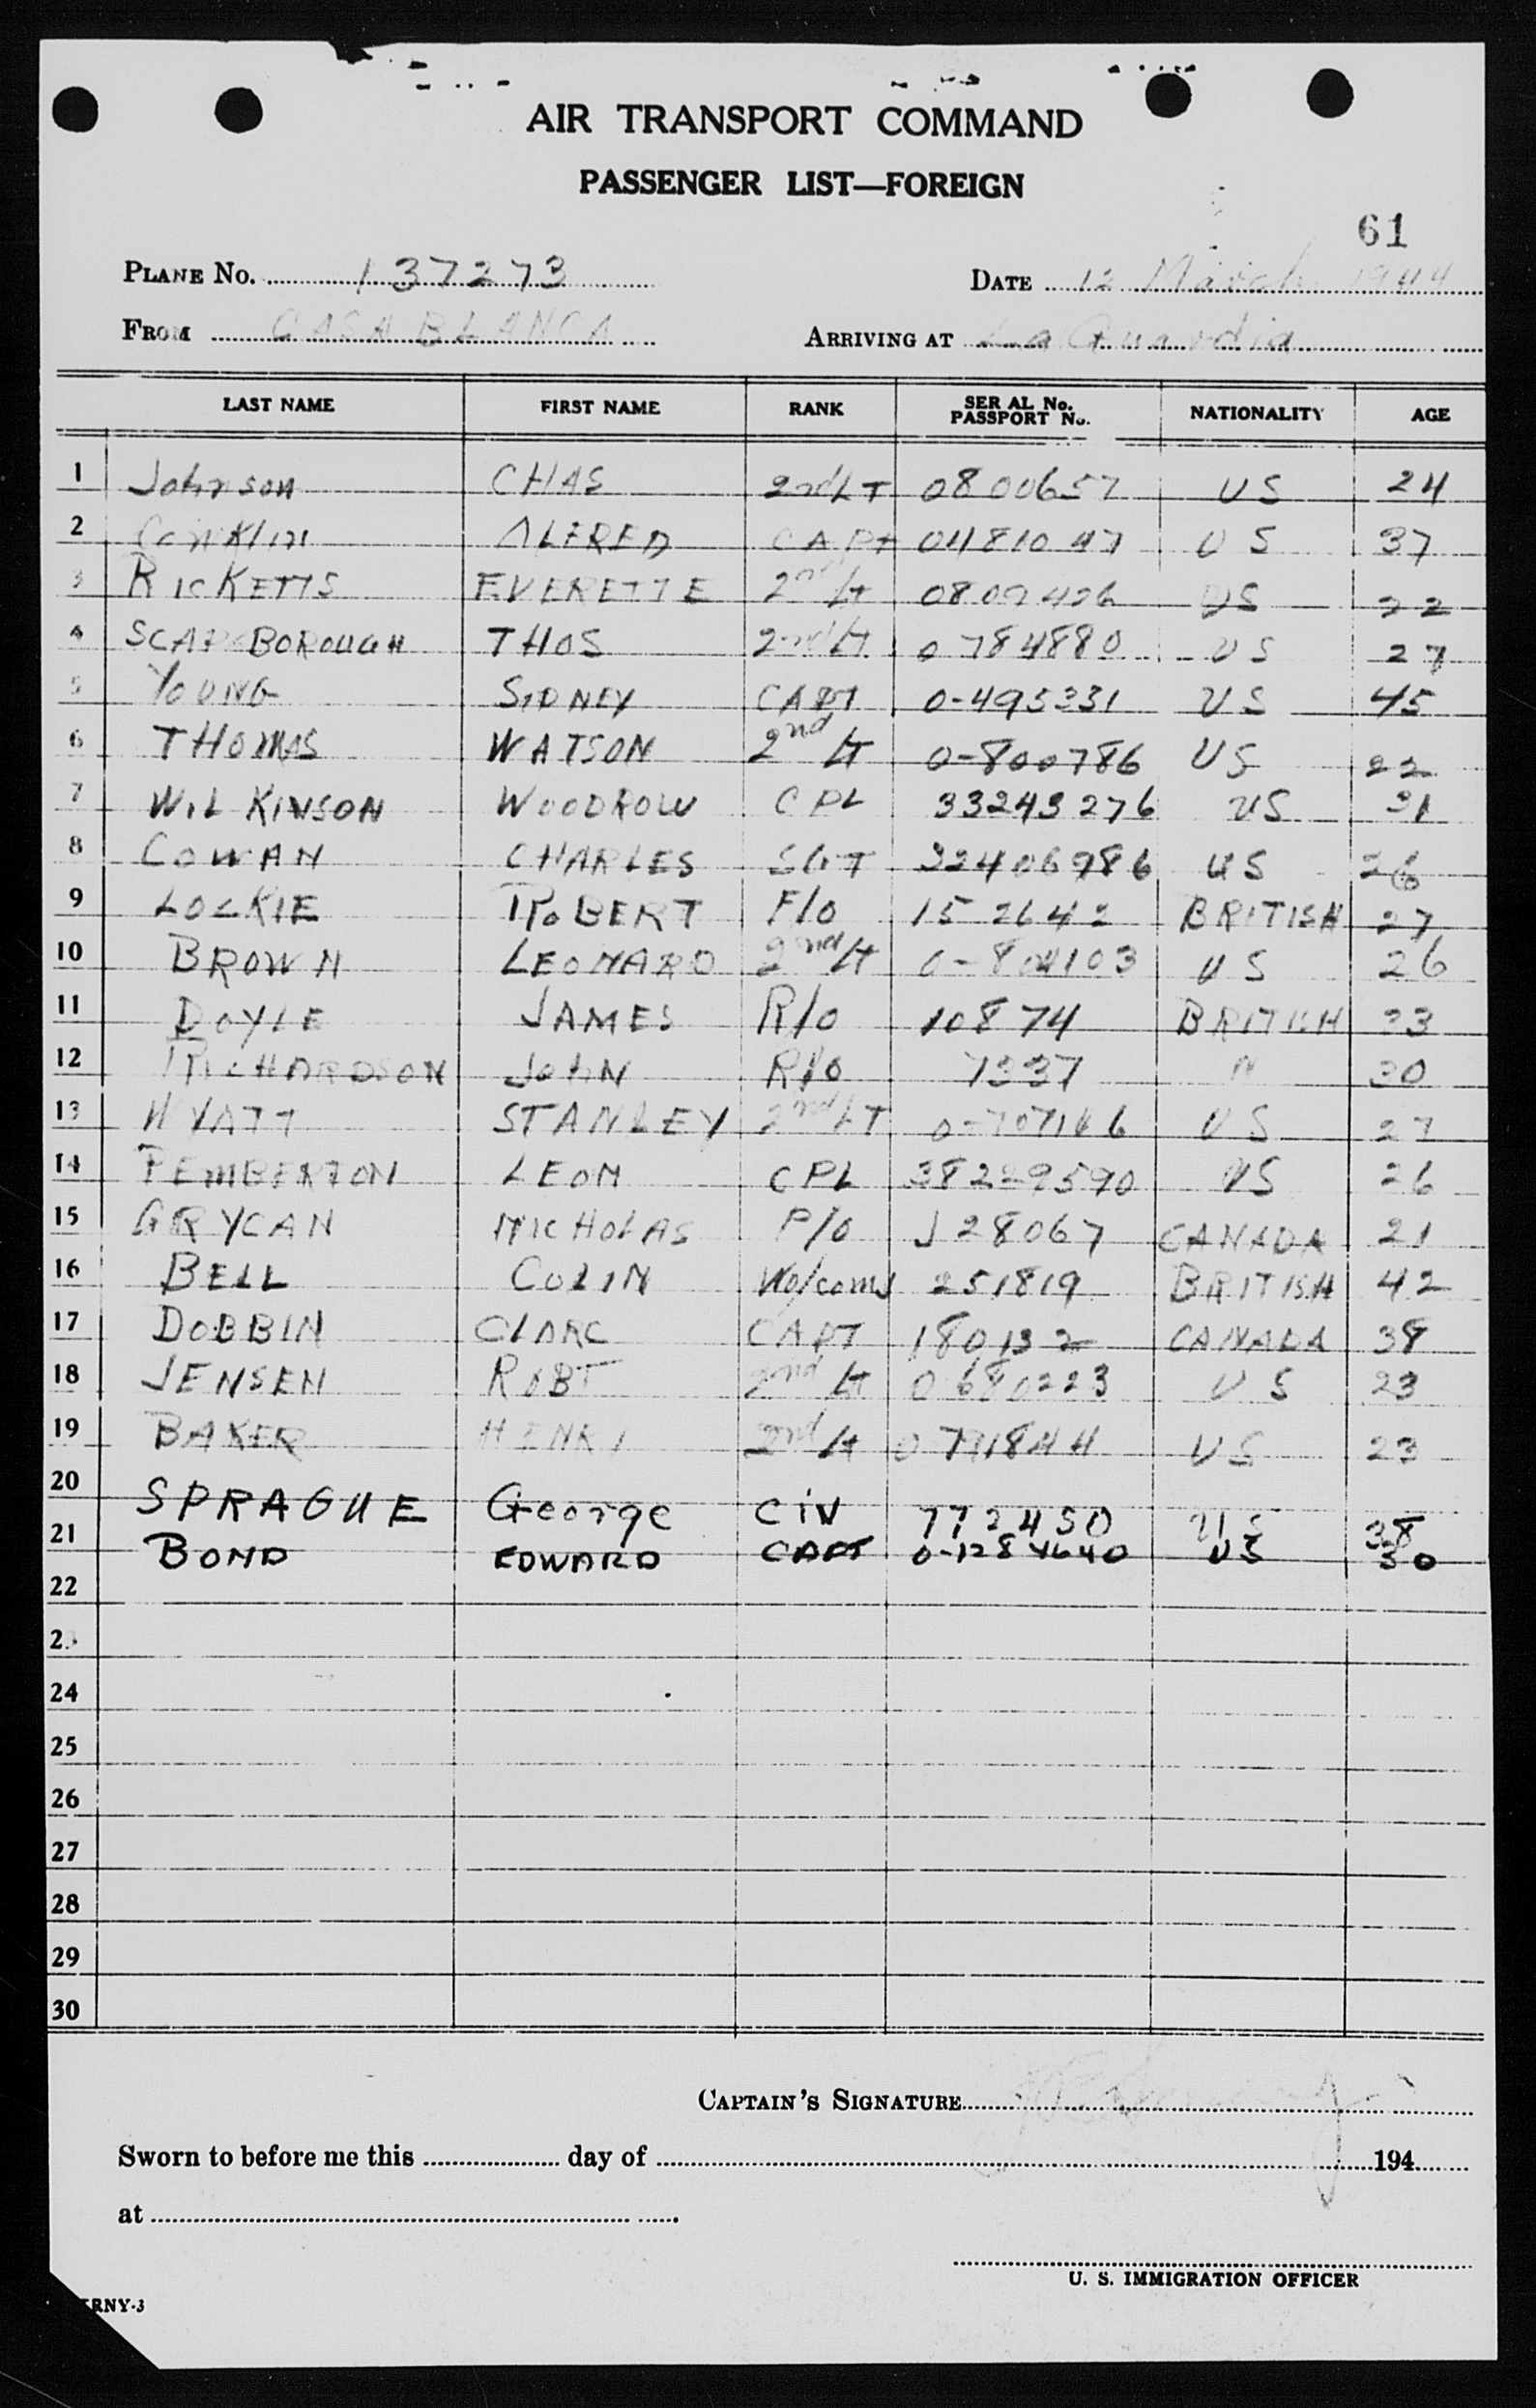 AIR TRANSPORT COMMAND
PASSENGER LIST—FOREIGN
61
PLANE No. 137273 DATE 12 March 1944
FROM CASABLANCA ARRIVING AT La Guardia
LAST NAME FIRST NAME RANK SERIAL No. PASSPORT No. NATIONALITY AGE
1 Johnson CHAS 2nd LT 0800657 US 24
2 Conklin ALFRED CAPT 0481047 US 37
3 RICKETTS EVERETTE 2nd Lt 0809426 US 22
4 SCARBOROUGH THOS 2nd Lt 0784880 US 27
5 YOUNG SIDNEY CAPT 0-495331 US 45
6 THOMAS WATSON 2nd Lt 0-800786 US 22
7 WILKINSON WOODROW CPL 33243276 US 31
8 COWAN CHARLES SGT 32406986 US 26
9 LOCKIE ROBERT F/O 152642 BRITISH 27
10 BROWN LEONARD 2nd Lt 0-804103 US 26
11 DOYLE JAMES R/O 10874 BRITISH 33
12 RICHARDSON JOHN R/O 7337 " 30
13 WYATT STANLEY 2nd LT 0-707166 US 27
14 PEMBERTON LEON CPL 38229590 US 26
15 GRYCAN NICHOLAS P/O J28067 CANADA 21
16 BELL COLIN 251819 BRITISH 42
17 DOBBIN CLARC CAPT 180132 CANADA 38
18 JENSEN ROBT 2nd Lt 0680223 US 23
19 BAKER HENRY 2nd Lt US 23
20 SPRAGUE George CIV 772450 US 38
21 BOND EDWARD CAPT 0-1284640 US 30
22
23
24
25
26
27
28
29
30
CAPTAIN'S SIGNATURE
Sworn to before me this day of 194
at
U. S. IMMIGRATION OFFICER
RNY-3